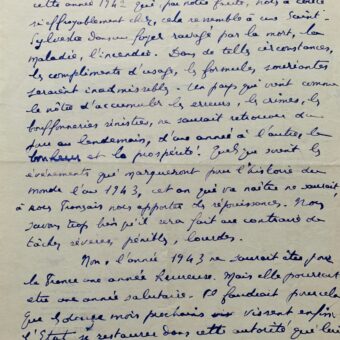 cette année 1942 qui, par notre faute, nous a coûté
si effroyablement cher, cela ressemble à une Saint-
Sylvestre dans un foyer ravagé par la mort, la
maladie, l'incendie. Dans de telles circonstances,
les compliments d'usage, les formules souriantes
seraient inadmissibles. Un pays qui vient comme
le nôtre d'accumuler les erreurs, les crimes, les
bouffonneries sinistres, ne saurait retrouver du
jour au lendemain, d'une année à l'autre, le
bonheur et la prospérité. Quels que soient les
événements qui marqueront pour l'histoire du
monde l'an 1943, cet an qui va naître ne saurait
à nous Français nous apporter des réjouissances. Nous
savons trop bien qu'il sera fait au contraire de
tâches sévères, pénibles, lourdes.
Non, l'année 1943 ne saurait être pour
la France une année heureuse. Mais elle pourrait
être une année salutaire. Il faudrait pour cela
que les douze mois prochains vissent enfin
l'Etat se restaurer dans cette autorité qui lui